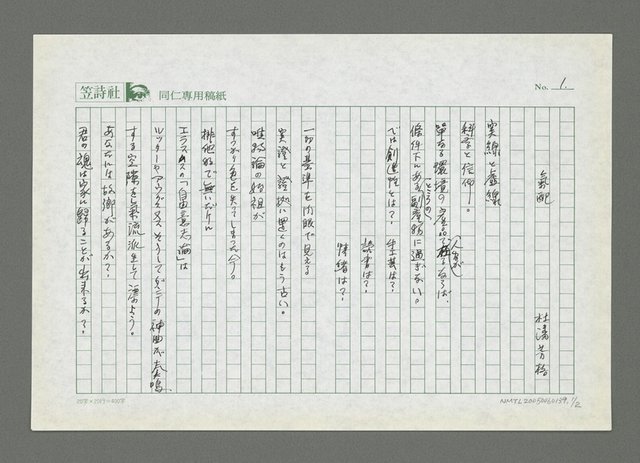 笠詩社
同仁專用稿紙
No. 1.
氣配
杜潘芳格
実線と虚線
科学と信仰――。
単なる環境の産品で
人間が
条件下にある副産物に過ぎない。
では創造性とは？
芸は？
読書は？
情緒は？
一切の基準を肉眼で見える
実證と證拠に置くのはもう古い。
唯物論の始祖が
すっかり色を失ってしまった今。
排他的で無いだけに
エラスムスの「自由意志論」は
ルッターやアウグスチヌスそうしてダンテの神曲が奏鳴
する空隙を氣流派生して漂よう。
あなたには故郷があるか？
君の魂は家に歸ることが出来るか？
20字×20行=400字
NMTL20050060139. 1/2